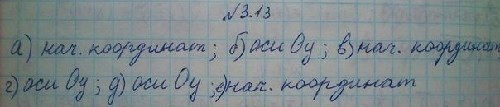 №3.13
а) нач. координат; б) оси Оу; в) нач. координат
г) оси Оу; д) оси Оу; е) нач. координат